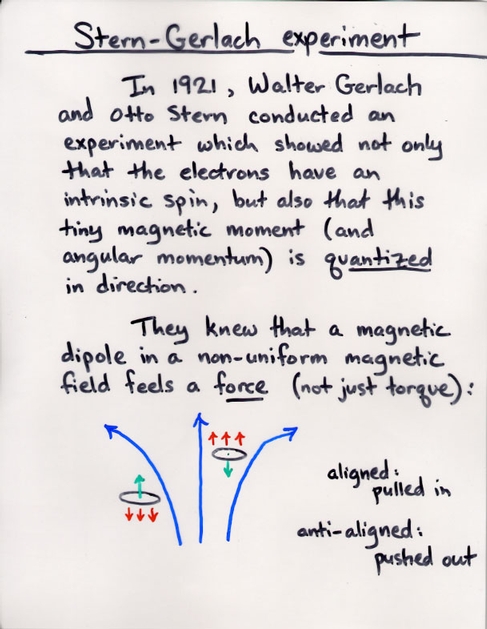 Stern-Gerlach experiment
In 1921, Walter Gerlach
and Otto Stern conducted an
experiment which showed not only
that the electrons have an
intrinsic spin, but also that this
tiny magnetic moment (and
angular momentum) is quantized
in direction.
They knew that a magnetic
dipole in a non-uniform magnetic
field feels a force (not just torque):
aligned:
pulled in
anti-aligned:
pushed out